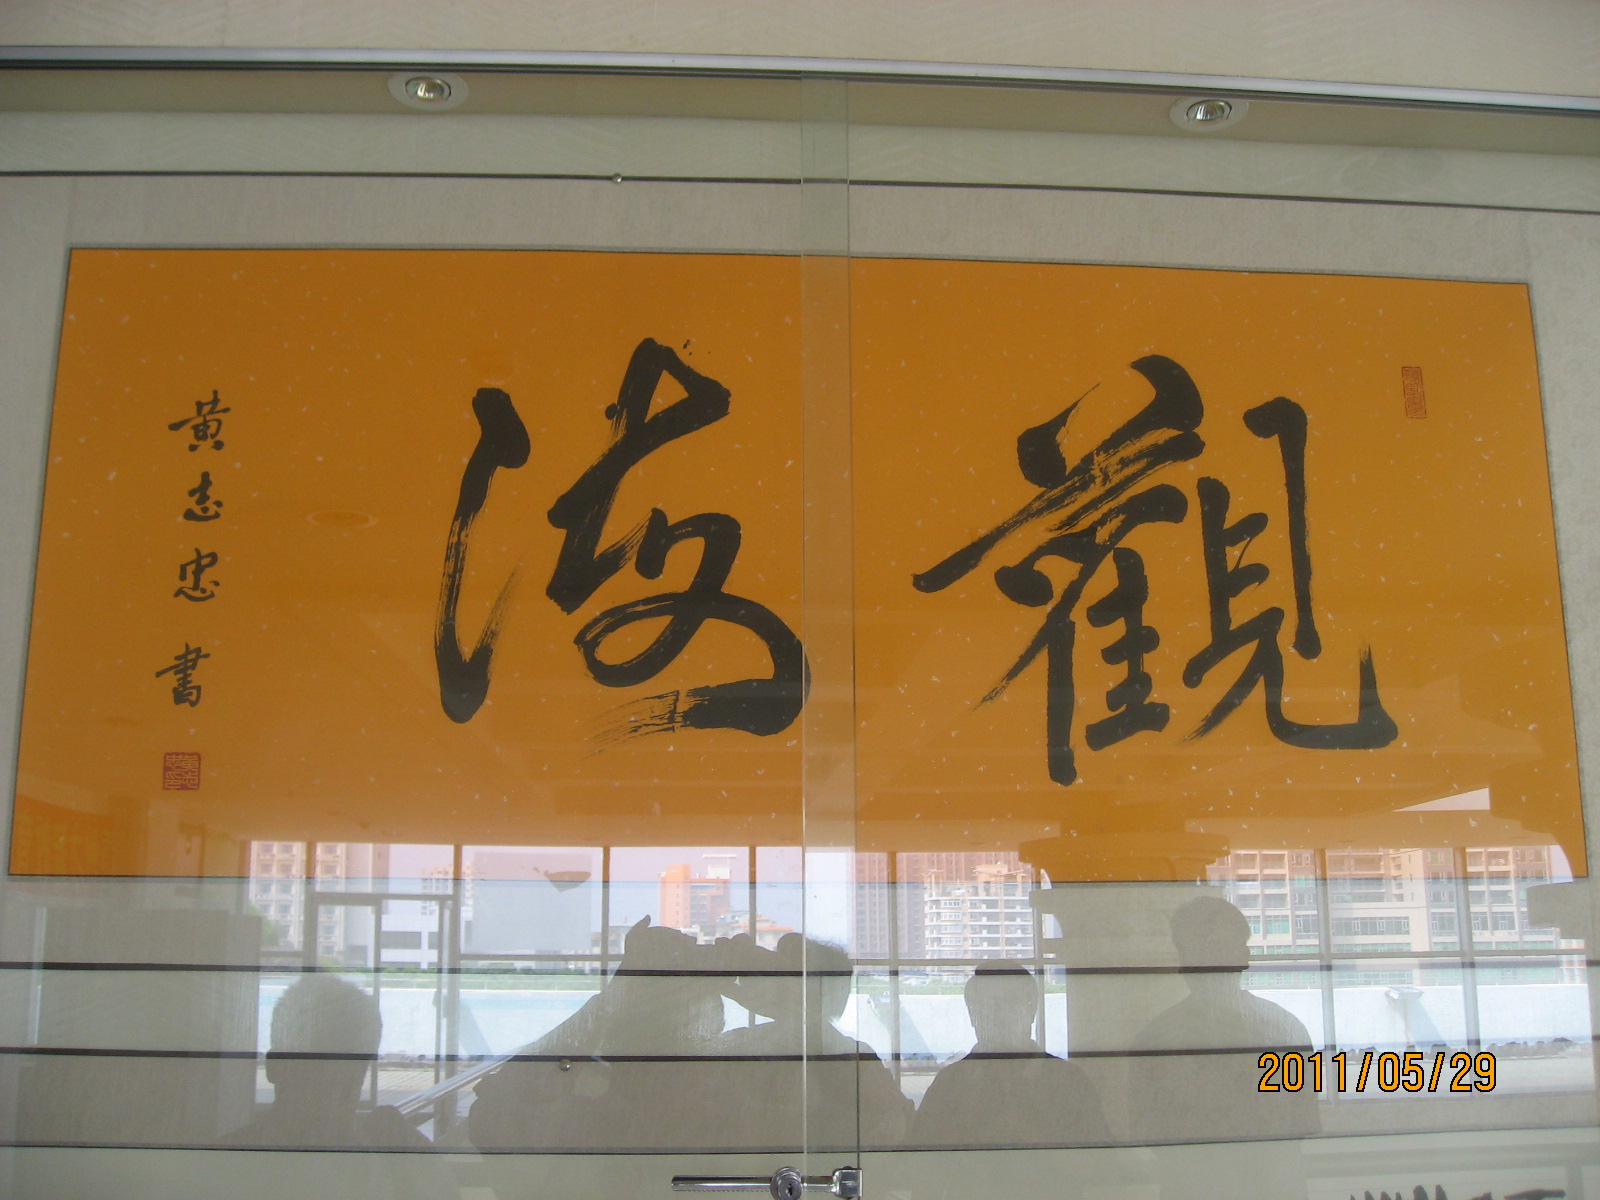 觀海
黄志忠書
2011/05/29